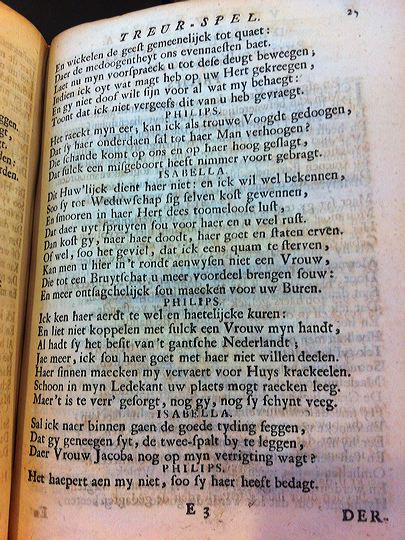 TREUR-SPEL. 29
En wickelen de geest gemeenelijck tot quaet:
Daer de medoogentheyt ons evennaesten baet.
Laet nu myn voorspraeck u tot dese deugt beweegen;
Indien ick oyt wat magt heb op uw Hert gekreegen,
En gy niet doof wilt sijn voor al wat my behaegt:
Toont dat ick niet vergeefs dit van u heb gevraegt.
PHILIPS.
Het raeckt myn eer; kan ick als trouwe Voogdt gedoogen,
Dat sy haer onderdaen sal tot haer Man verhoogen?
Die schande komt op ons en op haer hoog geslagt,
Dat sulck een misgeboort heeft nimmer voort gebragt.
ISABELLA.
Dit Huw'lijck dient haer niet: en ick wil wel bekennen,
Soo sy tot Weduwschap sig selven kost gewennen,
En smooren in haer Hert dees toomeloose lust,
Dat daer uyt spruyten sou voor haer en u veel rust.
Dan kost gy, naer haer doodt, haer goet en staten erven.
Of wel, soo het geviel, dat ick eens quam te sterven,
Kan men u hier in't rondt aenwysen niet een Vrouw,
Die tot een Bruytschat u meer voordeel brengen souw:
En meer ontsagchelijck sou maecken voor uw Buren.
PHILIPS.
Ick ken haer aerdt te wel en haetelijcke kuren:
En liet niet koppelen met sulck een Vrouw myn handt,
Al hadt sy het besit van't gantsche Nederlandt;
Jae meer, ick sou haer goet met haer niet willen deelen.
Haer sinnen maecken my vervaert voor Huys krackeelen.
Schoon in myn Ledekant uw plaets mogt raecken leeg.
Maer't is te verr' gesorgt, nog gy, nog sy schynt veeg.
ISABELLA.
Sal ick naer binnen gaen de goede tyding seggen,
Dat gy geneegen syt, de twee-spalt by te leggen,
Daer Vrouw Jacoba nog op myn verrigting wagt?
PHILIPS.
Het haepert aen my niet, soo sy haer heeft bedagt.
E 3 DER-